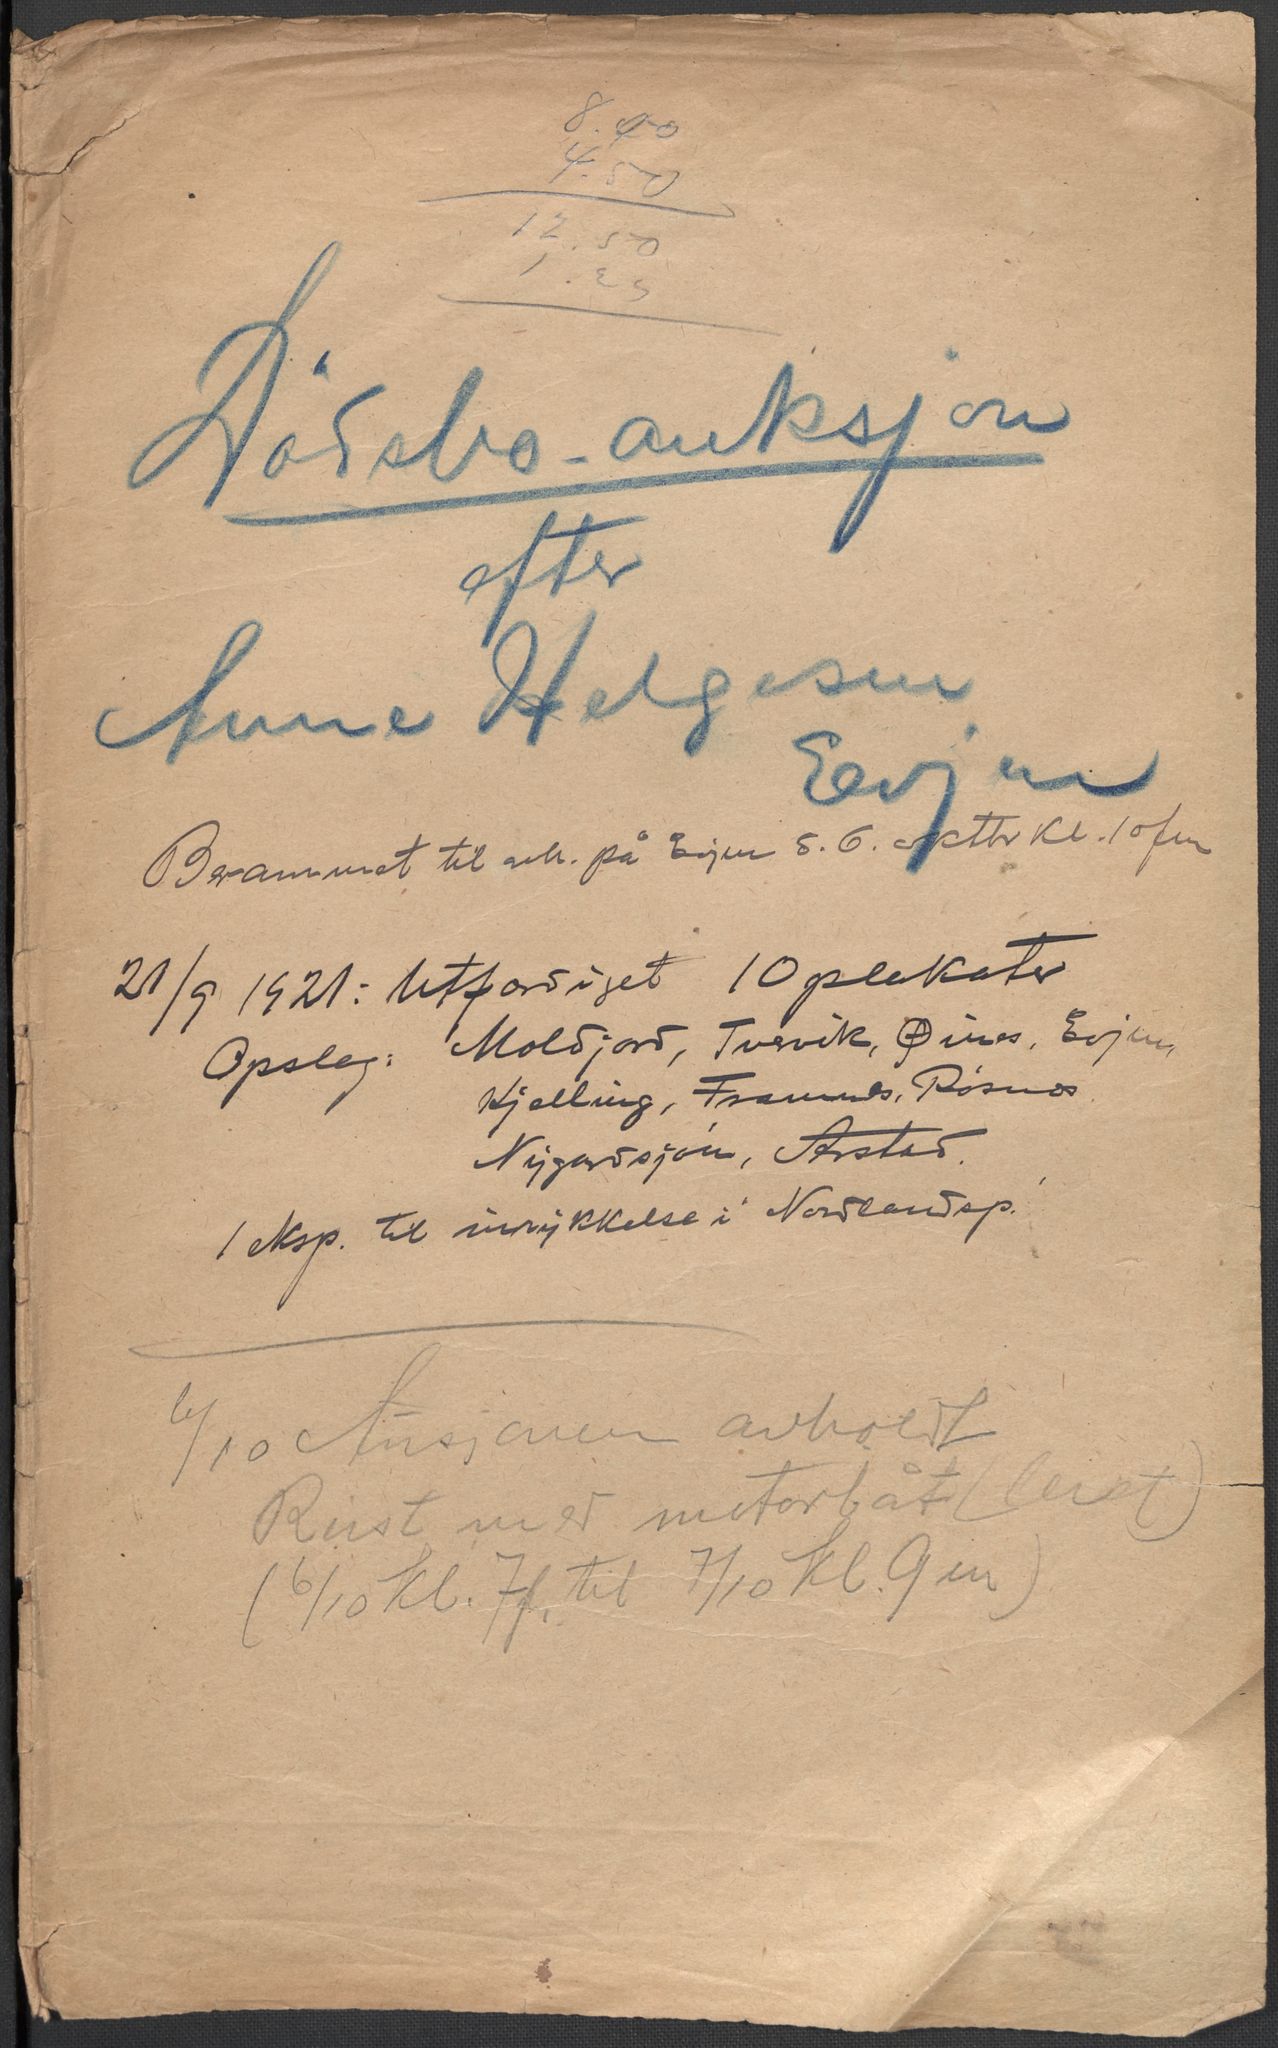 8.00
4.50
12.50
1.25
Dødsbo-auksjon
efter
Anne Helgesen
Evjen
Berammet til avh. på Evjen d. 6. oktbr kl. 10 fm
21/9 1921: Utfærdiget 10 plakater
Opslag: Moldjord, Tvervik, Øines, Evjen,
Kjelling, Framnes, Røsnes
Nygardsjøn, Arstad.
1 eksp. til inrykkelse i Nordlandsp.
6/10 Auksjonen avholdt
Reist med motorbåt (leiet)
(6/10 kl. 7 f. til 7/10 kl. 9 em)